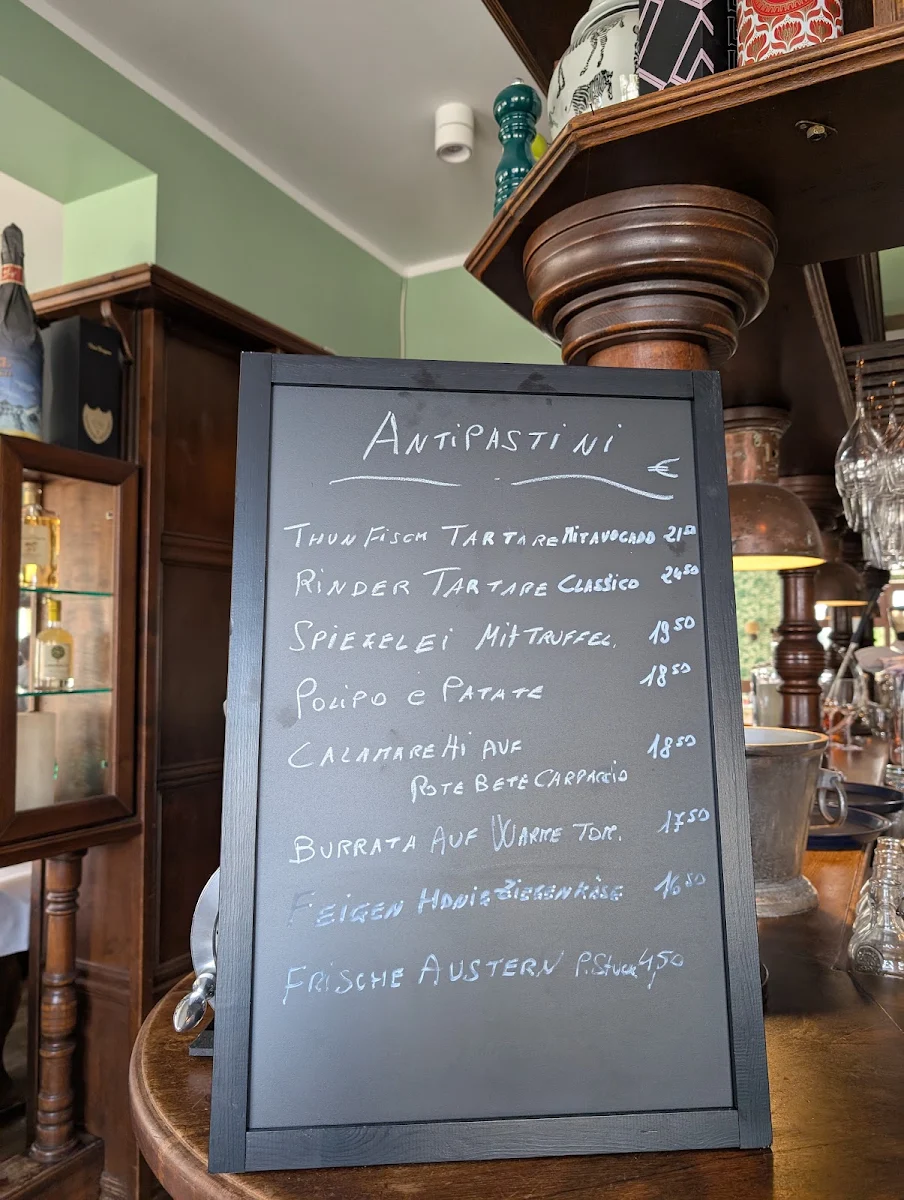 ANTIPASTINI
€
THUNFISCH TARTARE MIT AVOCADO 21⁵⁰
RINDER TARTARE CLASSICO 24⁵⁰
SPIEKELEI MIT TRUFFEL. 19⁵⁰
POLIPO e PATATE 18⁵⁰
CALAMAREHI AUF 18⁵⁰
ROTE BETE CARPACCIO
BURRATA AUF WARME TOM. 17⁵⁰
FEIGEN HONIG ZIEGENKÄSE 16⁵⁰
FRISCHE AUSTERN P. Stuck 4,50